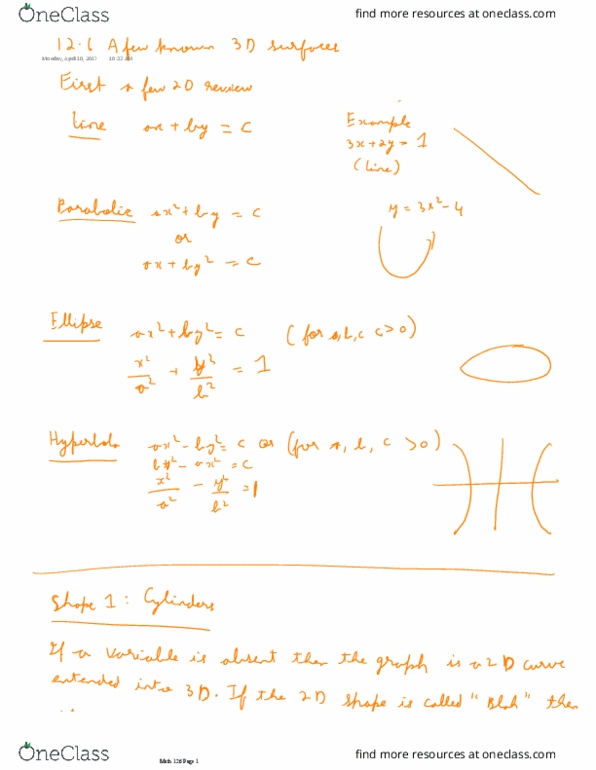 OneClass
find more resources at oneclass.com
12.6 A few known 3D surfaces
Monday, April 10, 10:22 AM
First a few 2D review
Line ax + by = c
Example
3x + 2y = 1
(line)
Parabolic ax² + by = c
or
ax + by² = c
y = 3x² - 4
Ellipse ax² + by² = c (for a, b, c c>0)
x²/a² + y²/b² = 1
Hyperbola ax² - by² = c or (for a, b, c >0)
by² - ax² = c
x²/a² - y²/b² = 1
Shape 1: Cylinders
If a variable is absent then the graph is a 2D curve
extended into 3D. If the 2D shape is called "Blah" then
OneClass
Math 126 Page 1
find more resources at oneclass.com